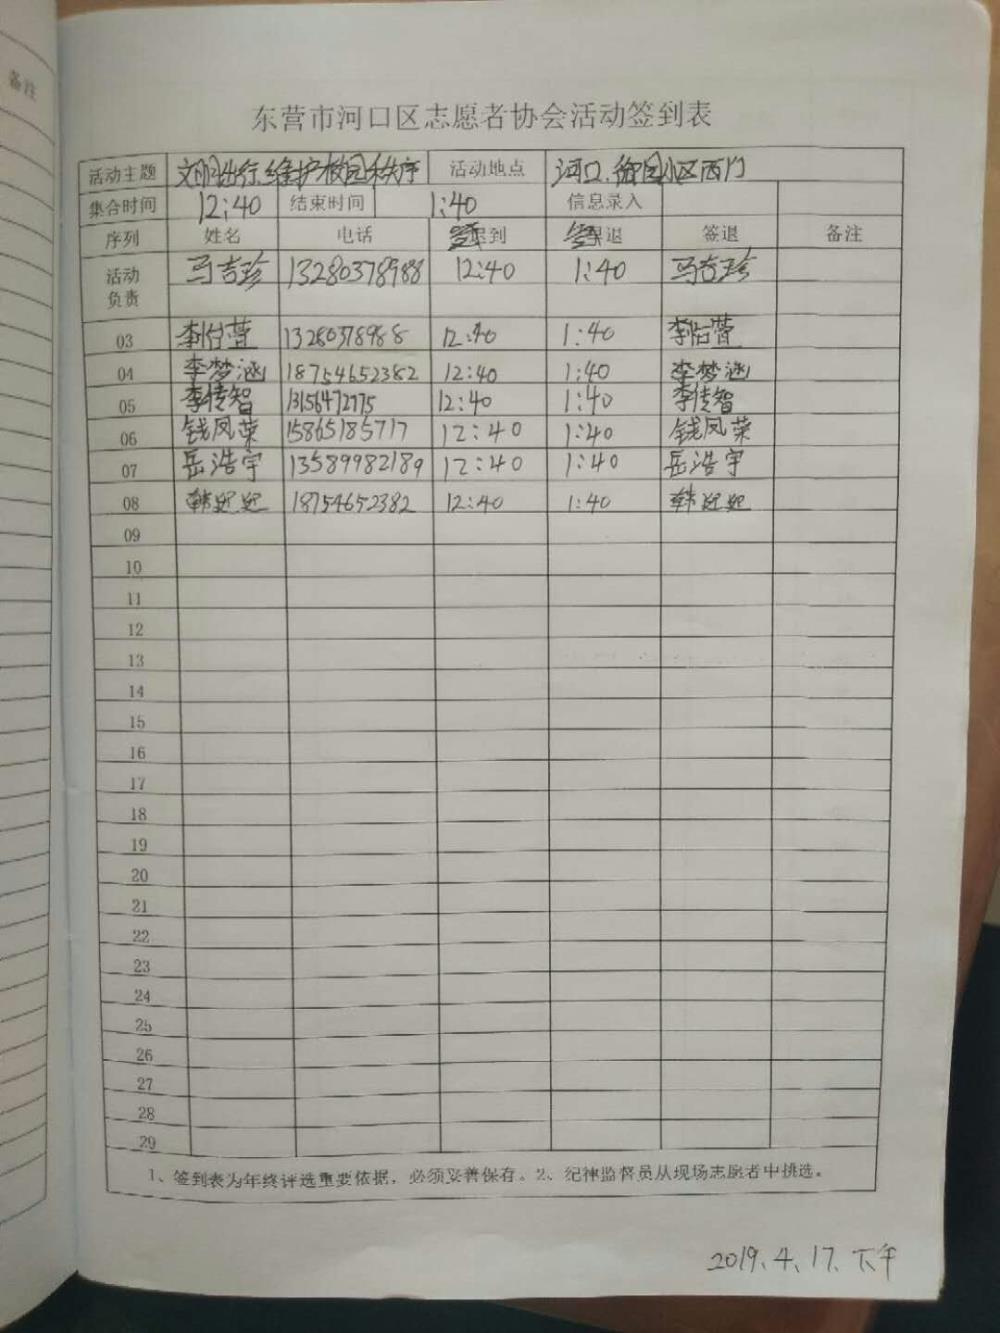 备注
东营市河口区志愿者协会活动签到表
活动主题 文明出行、维护校园秩序 活动地点 河口、御园小区西门
集合时间 12:40 结束时间 1:40 信息录入
序列 姓名 电话 签到 签退 签退 备注
活动负责 马吉珍 13280378988 12:40 1:40 马吉珍
03 李怡萱 13280378988 12:40 1:40 李怡萱
04 李梦涵 18754652382 12:40 1:40 李梦涵
05 李传智 12:40 1:40 李传智
06 钱凤荣 15865185717 12:40 1:40 钱凤荣
07 岳浩宇 13589982189 12:40 1:40 岳浩宇
08 韩 18754652382 12:40 1:40 韩
09
10
11
12
13
14
15
16
17
18
19
20
21
22
23
24
25
26
27
28
29
1、签到表为年终评选重要依据，必须妥善保存。2、纪律监督员从现场志愿者中挑选。
2019.4.17.下午